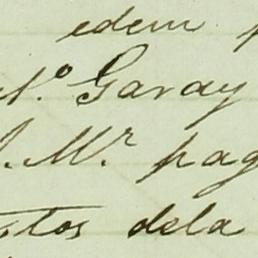 edem p
to. Garay
S. Mr. pag
stos dela